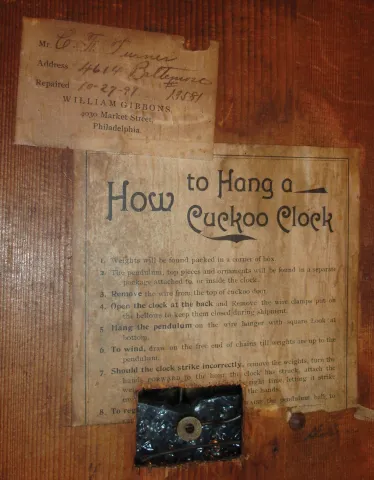 Mr. C. M. Turner
Address 4614 Baltimore
Repaired 10-27-98 #13581
WILLIAM GIBBONS,
4030 Market Street,
Philadelphia
How to Hang a
Cuckoo Clock
1. Weights will be found packed in a corner of box.
2. The pendulum, top pieces and ornaments will be found in a separate
package attached to or inside the clock.
3. Remove the wire from the top of cuckoo door.
4. Open the clock at the back and Remove the wire clamps put on
the bellows to keep them closed during shipment.
5. Hang the pendulum on the wire hanger with square hook at
bottom.
6. To wind, draw on the free end of chains till weights are up to the
pendulum.
7. Should the clock strike incorrectly, remove the weights, turn the
hands forward to the hour the clock has struck, attach the
right time, letting it strike
the hands.
8. To
the pendulum ball; to